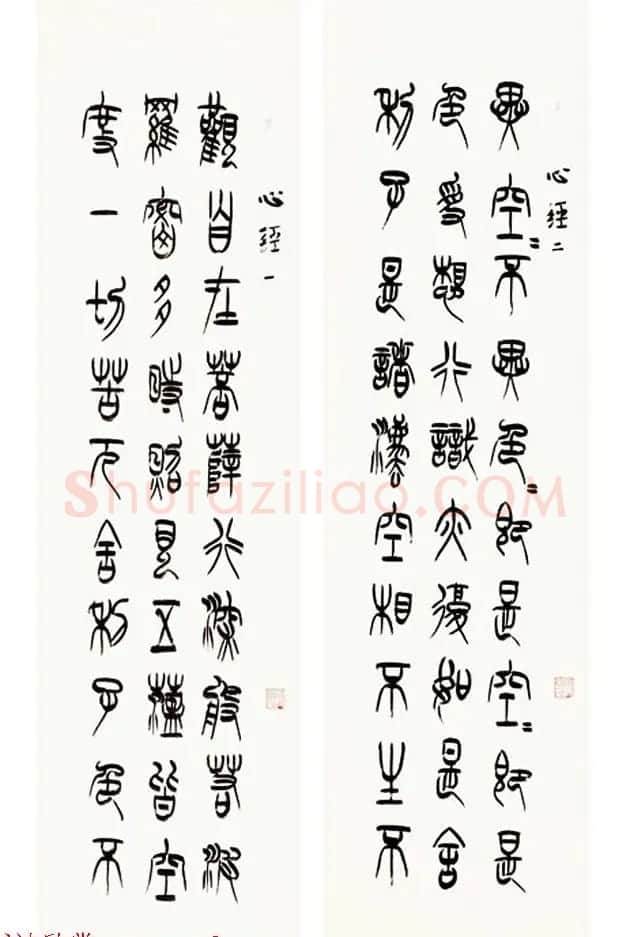 心經一
觀自在菩薩行深般若波
羅蜜多時照見五蘊皆空
度一切苦厄舍利子色不
心經二
異空〻不異色〻即是空〻即是
色受想行識亦復如是舍
利子是諸法空相不生不
Shufaziliao.COM